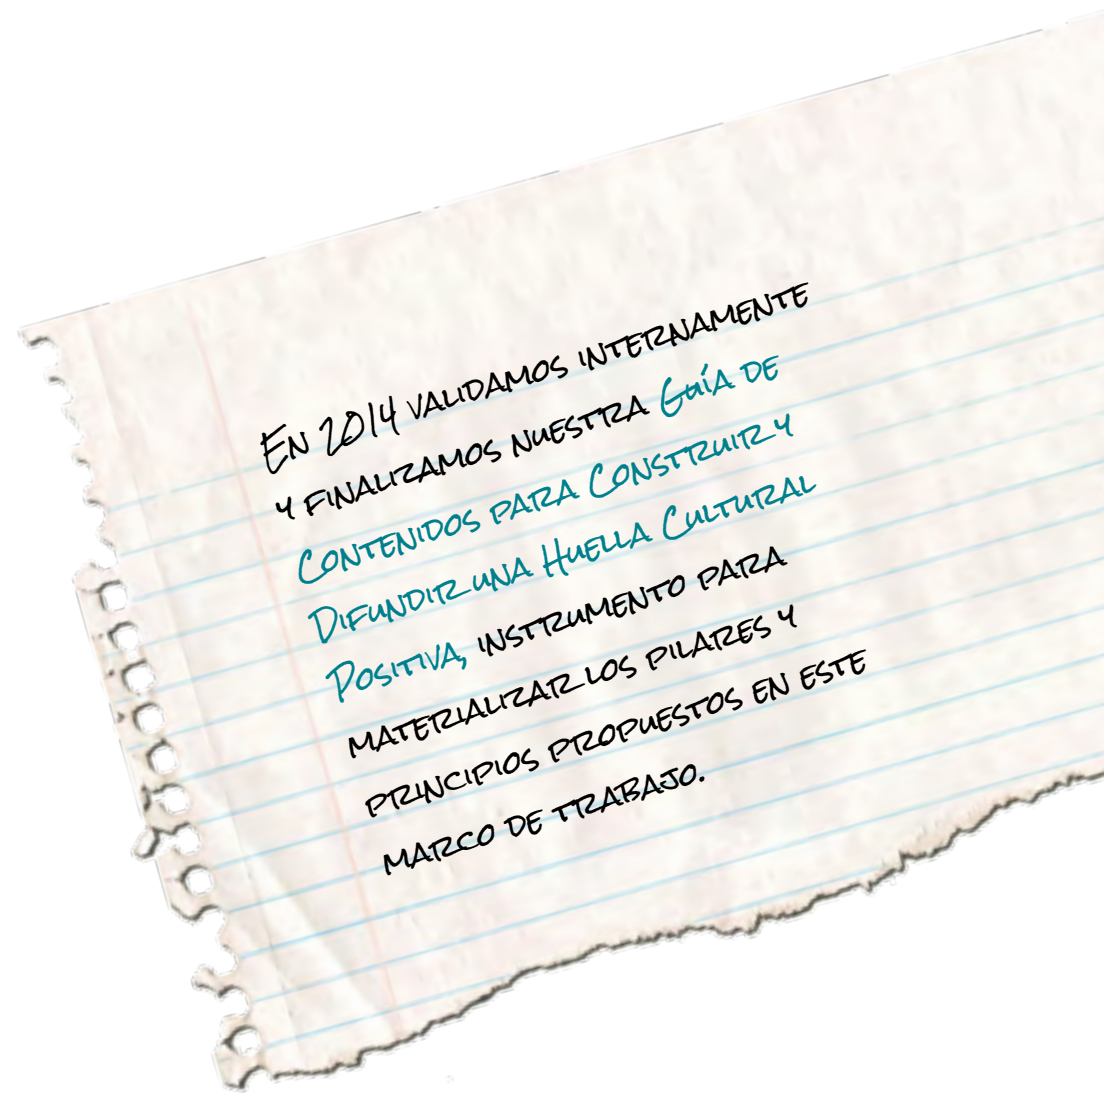 En 2014 validamos internamente
y finalizamos nuestra Guía de
Contenidos para Construir y
Difundir una Huella Cultural
Positiva, instrumento para
materializar los pilares y
principios propuestos en este
marco de trabajo.